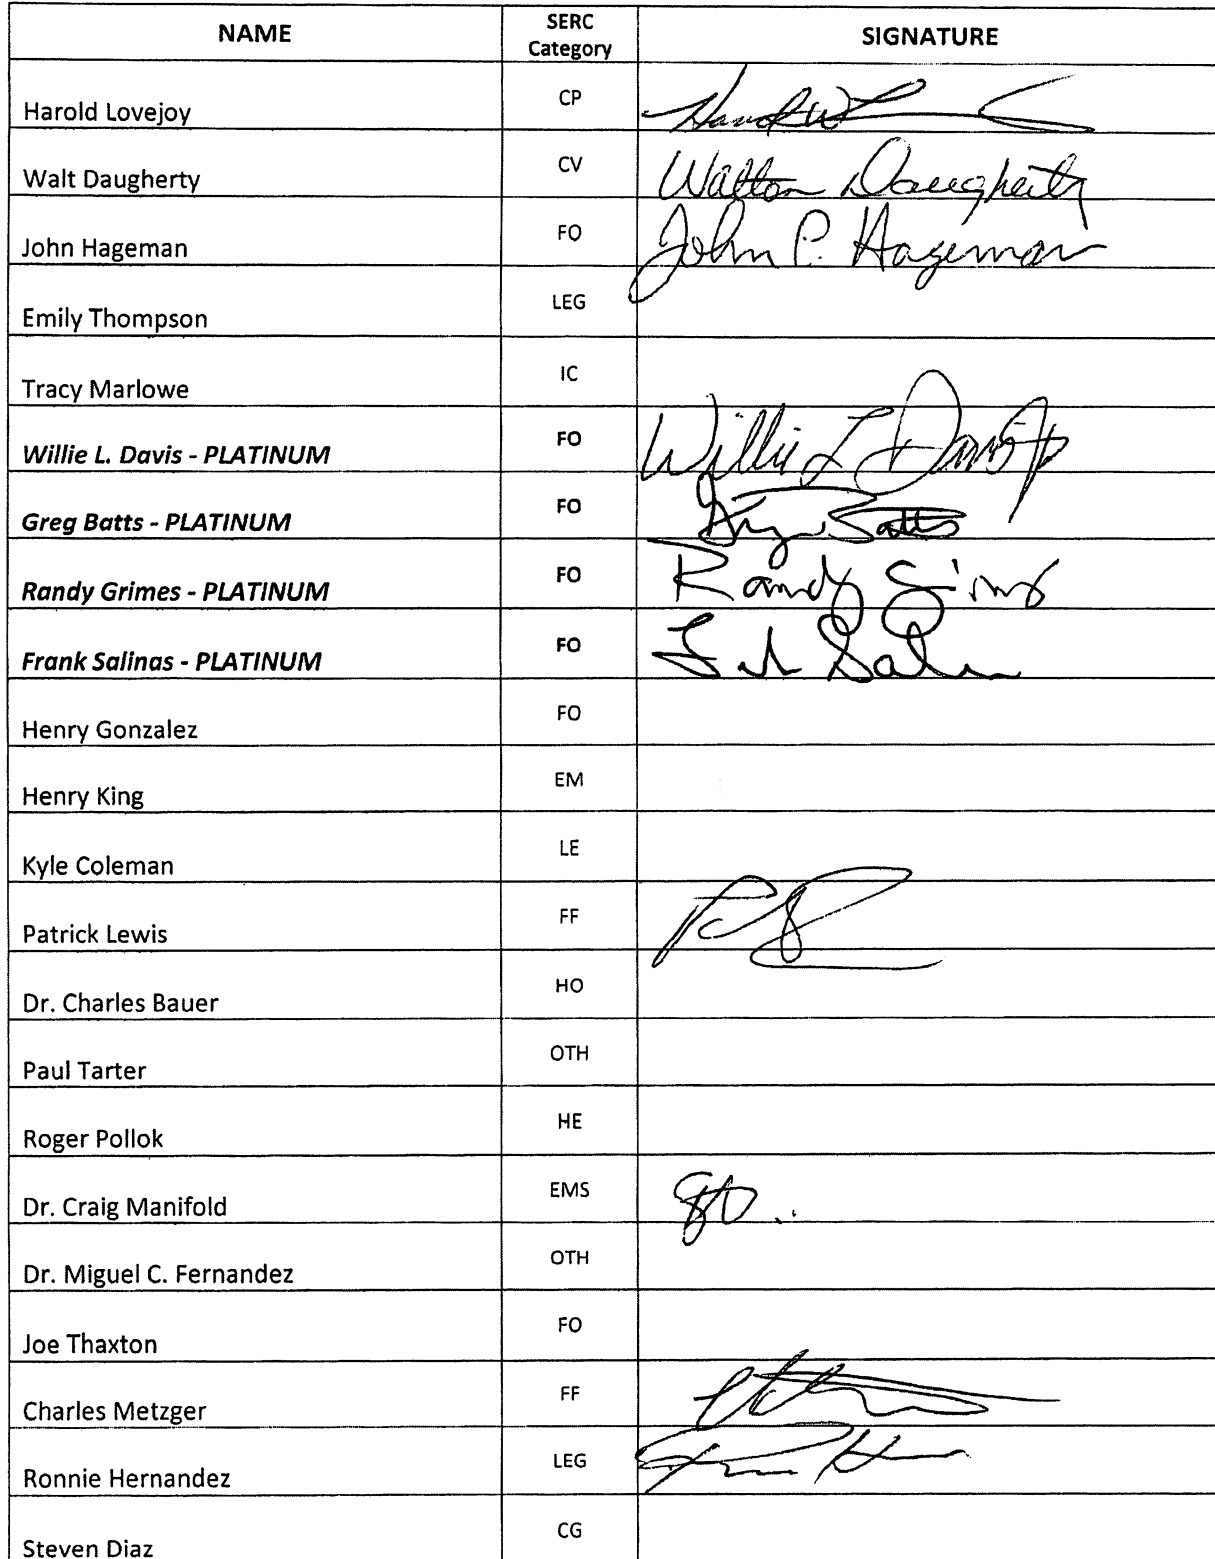 NAME SERC Category SIGNATURE
Harold Lovejoy CP Harold W L
Walt Daugherty CV Walton Daugherty
John Hageman FO John P. Hageman
Emily Thompson LEG
Tracy Marlowe IC
Willie L. Davis - PLATINUM FO Willie L Davis Jr
Greg Batts - PLATINUM FO Greg Batts
Randy Grimes - PLATINUM FO Randy Grimes
Frank Salinas - PLATINUM FO
Henry Gonzalez FO
Henry King EM
Kyle Coleman LE
Patrick Lewis FF
Dr. Charles Bauer HO
Paul Tarter OTH
Roger Pollok HE
Dr. Craig Manifold EMS
Dr. Miguel C. Fernandez OTH
Joe Thaxton FO
Charles Metzger FF
Ronnie Hernandez LEG
Steven Diaz CG